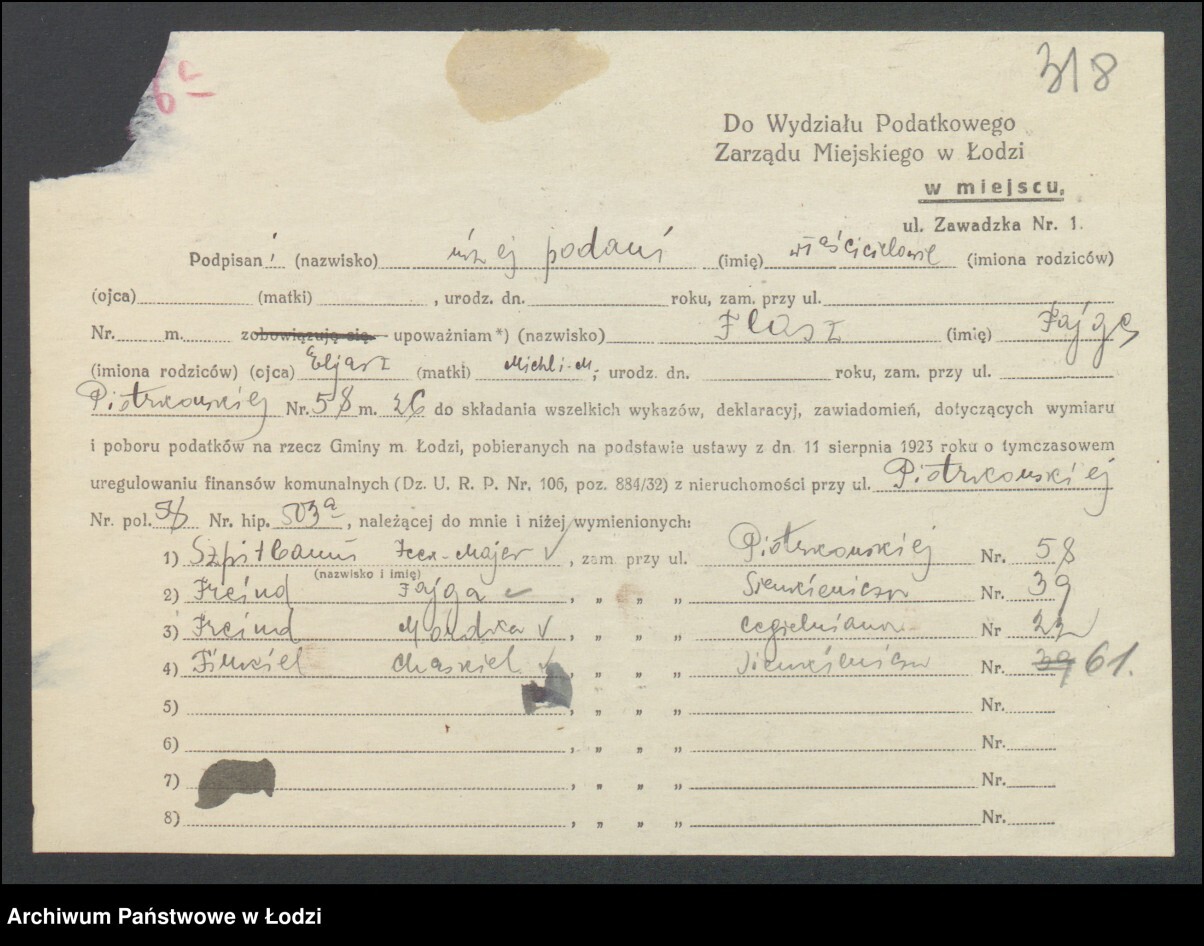 318
Do Wydziału Podatkowego
Zarządu Miejskiego w Łodzi
w miejscu,
ul. Zawadzka Nr. 1.
Podpisani (nazwisko) niżej podani (imię) właściciele (imiona rodziców)
(ojca) (matki) , urodz. dn. roku, zam. przy ul.
Nr. m. zobowiązuję się upoważniam *) (nazwisko) Flasz (imię) Fajga
(imiona rodziców) (ojca) Eljasz (matki) Michli-M., urodz. dn. roku, zam. przy ul.
Piotrkowskiej Nr. 58 m. 26 do składania wszelkich wykazów, deklaracyj, zawiadomień, dotyczących wymiaru
i poboru podatków na rzecz Gminy m. Łodzi, pobieranych na podstawie ustawy z dn. 11 sierpnia 1923 roku o tymczasowem
uregulowaniu finansów komunalnych (Dz. U. R. P. Nr. 106, poz. 884/32) z nieruchomości przy ul. Piotrkowskiej
Nr. pol. 58 Nr. hip. 503a, należącej do mnie i niżej wymienionych:
1) Szpilbaum Icek-Majer ✓, zam. przy ul. Piotrkowskiej Nr. 58
(nazwisko i imię)
2) Freind Fajga ✓, „ „ „ Sienkiewicza Nr. 39
3) Freind Mordka ✓, „ „ „ Cegielniana Nr 22
4) Finkiel Chaskiel ✓, „ „ „ Sienkiewicza Nr. 39 61.
5) , „ „ „ Nr.
6) , „ „ „ Nr.
7) , „ „ „ Nr.
8) , „ „ „ Nr.
Archiwum Państwowe w Łodzi